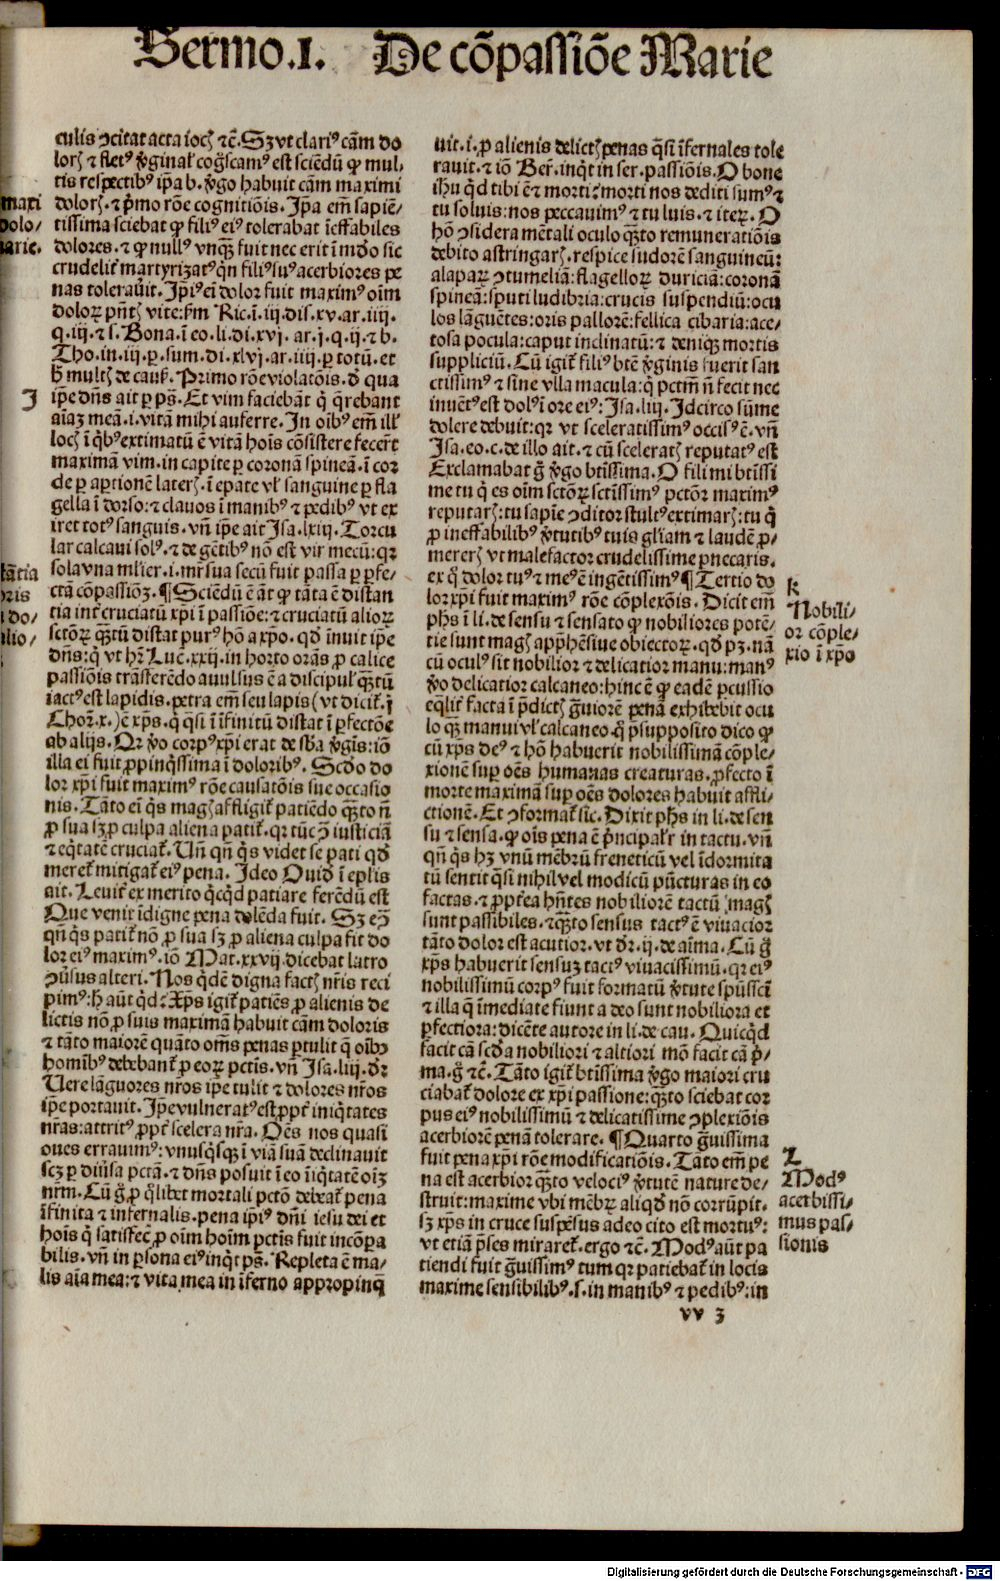 Sermo.I. De cõpassiõe Marie
culis ↄcitat acta ioc̃ꝝ ⁊c̃. Sꝫ vt clariꝰ cãm do
loꝝ ⁊ fletꝰ v̾ginal' cog̃scamꝰ est sciẽdũ ꝙ mul
tis respectibꝰ ip̃a b. v̾go habuit cãm maximi
doloꝝ. ⁊ p̾mo rõe cognitiõis. Ip̃a em̃ sapiẽ/
tissima sciebat ꝙ filiꝰ eiꝰ tolerabat ĩeffabiles
dolores. ⁊ ꝙ nullꝰ vnqꝫ fuit nec erit ĩ mũdo sic
crudelit̾ martyrizatꝰ qñ filiꝰ suꝰ acerbiores pe
nas tolerauit. Ip̃iꝰ em̃ dolor fuit maximꝰ oĩm
doloꝝ pñtis vite: ẜm Ric. ĩ. iij. dis. xv. ar. iiij.
q. iij. ⁊ s. Bona. ĩ eo. li. di. xvj. ar. j. q. ij. ⁊ b.
Tho. in. iij. p. sum. di. xlvj. ar. iiij. ꝑ totũ. et
h̾ multis de causis. Primo rõe violatõis. d̾ qua
ip̃e dñs ait ꝑ ps̃. Et vim faciebãt q̾ q̾rebant
aĩaꝫ meã. i. vitã mihi auferre. In oĩbꝰ em̃ ill'
locis ĩ q̾bꝰ extimatũ ẽ vitã hoĩs cõsistere fecerũt
maximã vim. in capite ꝑ coronã spineã. ĩ cor
de ꝑ aꝑtionẽ lateris. ĩ epate vel sanguine ꝑ fla
gella ĩ dorso: ⁊ clauos ĩ manibꝰ ⁊ pedibꝰ vt ex
iret totꝰ sanguis. vñ ip̃e ait Isa. lxiij. Torcu
lar calcaui solꝰ. ⁊ de gẽtibꝰ nõ est vir mecũ: qꝛ
sola vna ml̾ier. i. mr̃ sua secũ fuit passa ꝑ ꝑfe/
ctã cõpassiõꝫ. ¶ Sciẽdũ ẽ aũt ꝙ tãta ẽ distan
tia int̾ cruciatũ xp̃i ĩ passiõe: ⁊ cruciatũ alioꝝ
sctõꝝ qꝫtũ distat purꝰ hõ a xp̃o. qd̾ ĩnuit ip̃e
dñs: q̾ vt hr̃ Luc̃. xxij. in horto orãs ꝓ calice
passiõis trãsferẽdo auulsus ẽ a discipul' qꝫtũ
iactꝰ est lapidis. petra em̃ seu lapis (vt dicit̾. j.
Choꝛ. x.) ẽ xp̃s. q̾ q̾si ĩ ĩfinitũ distat ĩ ꝑfectõe
ab alijs. Qꝛ v̾o corpꝰ xp̃i erat de sb̃a v̾gĩs: iõ
illa ei fuit ꝓpinq̾ssima ĩ doloribꝰ. Scd̾o do
lor xp̃i fuit maximꝰ rõe causatõis sue occasio
nis. Tãto em̃ q̾s magis affligit̾ patiẽdo qꝫto ñ
ꝓ sua sꝫ ꝓ culpa aliena patit̾. qꝛ tũc ↄ̃ iusticiã
⁊ eq̾tatẽ cruciat̾. Un̄ qñ q̾s videt se pati qd̾
meret̾ mitigat̾ eiꝰ pena. Ideo Ouid̾ ĩ ep̃lis
ait. Leuit̾ ex merito q̾cq̾d patiare ferẽdũ est
Que venit ĩdigne pena dolẽda fuit. Sꝫ ecõ
qñ q̾s patit̾ nõ ꝓ sua sꝫ ꝓ aliena culpa fit do
lor eiꝰ maximꝰ. iõ Mat. xxvij. dicebat latro
ↄ̃uersus alteri. Nos q̾dẽ digna factis nr̃is reci
pimꝰ: h̾ aũt q̾d: Xp̃s igit̾ patiẽs ꝓ alienis de
lictis nõ ꝓ suis maximã habuit cãm doloris
⁊ tãto maiorẽ quãto om̃s penas ꝑtulit q̃ oĩbꝰ
homĩbꝰ debebant̾ ꝓ eoꝝ pctĩs. vñ Isa. liij. dr̃
Uere lãguores nr̃os ip̃e tulit ⁊ dolores nr̃os
ip̃e portauit. Ip̃e vulneratꝰ est ꝓpt̾ iniq̾tates
nr̃as: attritꝰ ꝓpt̾ scelera nr̃a. Oẽs nos quasi
oues errauimꝰ: vnusq̾sqꝫ ĩ viã suã declinauit
scꝫ ꝑ diũsa pctã. ⁊ dñs posuit ĩ eo ĩiq̾tatẽ oĩꝫ
nr̃m. Cũ g̾ ꝓ q̾libet mortali pctõ debeat̾ pena
ĩfinita ⁊ infernalis. pena ip̃iꝰ dñi iesu dei et
hoĩs q̾ satisfec̃ ꝓ oĩm hoĩm pctĩs fuit incõꝑa
bilis. vñ in ꝑsona eiꝰ inq̾t ps̃. Repleta ẽ ma/
lis aĩa mea: ⁊ vita mea in ĩferno appropinq̃
uit. i. ꝓ alienis delictis penas q̾si ĩfernales tole
rauit. ⁊ iõ Ber̃. inq̾t in ser. passiõis. O bone
ih̃u q̾d tibi ẽ ⁊ morti: morti nos dediti sumꝰ ⁊
tu soluis: nos peccauimꝰ ⁊ tu luis. ⁊ iteꝝ. O
hõ ↄsidera mẽtali oculo qꝫto remuneratiõis
debito astringaris. respice sudorẽ sanguineũ:
alapaꝝ ↄtumeliã: flagelloꝝ duriciã: coronã
spineã: sputi ludibria: crucis suspendiũ: ocu
los lãguẽtes: oris pallorẽ: fellica cibaria: ace/
tosa pocula: caput inclinatũ: ⁊ deniqꝫ mortis
suppliciũ. Cũ igit̾ filiꝰ btẽ v̾ginis fuerit san
ctissimꝰ ⁊ sine vlla macula: q̾ pctm̃ ñ fecit nec
inuẽtꝰ est dolꝰ ĩ ore eiꝰ: Isa. liij. Idcirco sũme
dolere debuit: qꝛ vt sceleratissimꝰ occisꝰ ẽ. vñ
Isa. eo. c. de illo ait. ⁊ cũ sceleratis reputatꝰ est
Exclamabat g̾ v̾go btĩssima. O fili mi btĩssi
me tu q̾ es oĩm sctõꝝ sctĩssimꝰ pctõꝝ maximꝰ
reputaris: tu sapiẽ ↄditor stultꝰ extimaris: tu q̾
ꝓ ineffabilibꝰ v̾tutibꝰ tuis gl'iam ⁊ laudẽ ꝓ/
mereris vt malefactor crudelissime ꝑnecaris.
ex q̾ dolor tuꝰ ⁊ meꝰ ẽ ingẽtissimꝰ ¶ Tertio do
lor xp̃i fuit maximꝰ rõe cõplexõis. Dicit em̃
ph̃s ĩ li. de sensu ⁊ sensato ꝙ nobiliores potẽ/
tie sunt magis app̾hẽsiue obiectoꝝ. qd̾ pꝫ. nã
cũ oculꝰ sit nobilior ⁊ delicatior manu: manꝰ
v̾o delicatior calcaneo: hinc ẽ ꝙ eadẽ ꝑcussio
eq̾lit̾ facta ĩ p̾dictis g̾uiorẽ penã exhibebit ocu
lo qꝫ manui vel calcaneo. q̾ p̾supposito dico ꝙ
cũ xp̃s deꝰ ⁊ hõ habuerit nobilissimã cõple/
xionẽ suꝑ oẽs humanas creaturas. ꝓfecto ĩ
morte maximã suꝑ oẽs dolores habuit affli/
ctionẽ. Et ↄformat̾ sic. Dixit ph̃s in li. de sen
su ⁊ sensa. ꝙ oĩs pena ẽ p̾ncipal'r in tactu. vñ
qñ q̾s hꝫ vnũ mẽbrũ freneticũ vel ĩdormita
tũ sentit q̾si nihil vel modicũ pũcturas in eo
factas. ⁊ ꝓpt̾ea hñtes nobiliorẽ tactũ magis
sunt passibiles. ⁊ qꝫto sensus tactꝰ ẽ viuacior
tãto dolor est acutior. vt dr̃. ij. de aĩma. Cũ g̾
xp̃s habuerit sensuꝫ tactꝰ viuacissimũ. qꝛ eiꝰ
nobilissimũ corpꝰ fuit formatũ v̾tute spũssctĩ
⁊ illa q̃ ĩmediate fiunt a deo sunt nobiliora et
ꝑfectiora: dicẽte autore in li. de cau. Quicq̾d
facit cã scd̾a nobiliori ⁊ altiori mõ facit cã p̾/
ma. g̾ ⁊c̃. Tãto igit̾ btĩssima v̾go maiori cru
ciabat̾ dolore ex xp̃i passione: qꝫto sciebat cor
pus eiꝰ nobilissimũ ⁊ delicatissime ↄplexiõis
acerbiorẽ penã tolerare. ¶ Quarto g̾uissima
fuit pena xp̃i rõe modificatiõis. Tãto em̃ pe
na est acerbior qꝫto velociꝰ v̾tutẽ nature de/
struit: maxime vbi mẽbꝝ aliqd̾ nõ corrũpit.
sꝫ xp̃s in cruce suspẽsus adeo cito est mortuꝰ:
vt etiã p̾ses miraret̾. ergo ⁊c̃. Modꝰ aũt pa
tiendi fuit g̾uissimꝰ tum qꝛ patiebat̾ in locis
maxime sensibilibꝰ. s. in manibꝰ ⁊ pedibꝰ: in
vv 3
maxi
dolo/
arie.
J
tãtia
do/
alio/
K
Nobili/
or cõple/
xio ĩ xp̃o
L
Modꝰ
acerbissi/
mus pas/
sionis
Digitalisierung gefördert durch die Deutsche Forschungsgemeinschaft - DFG